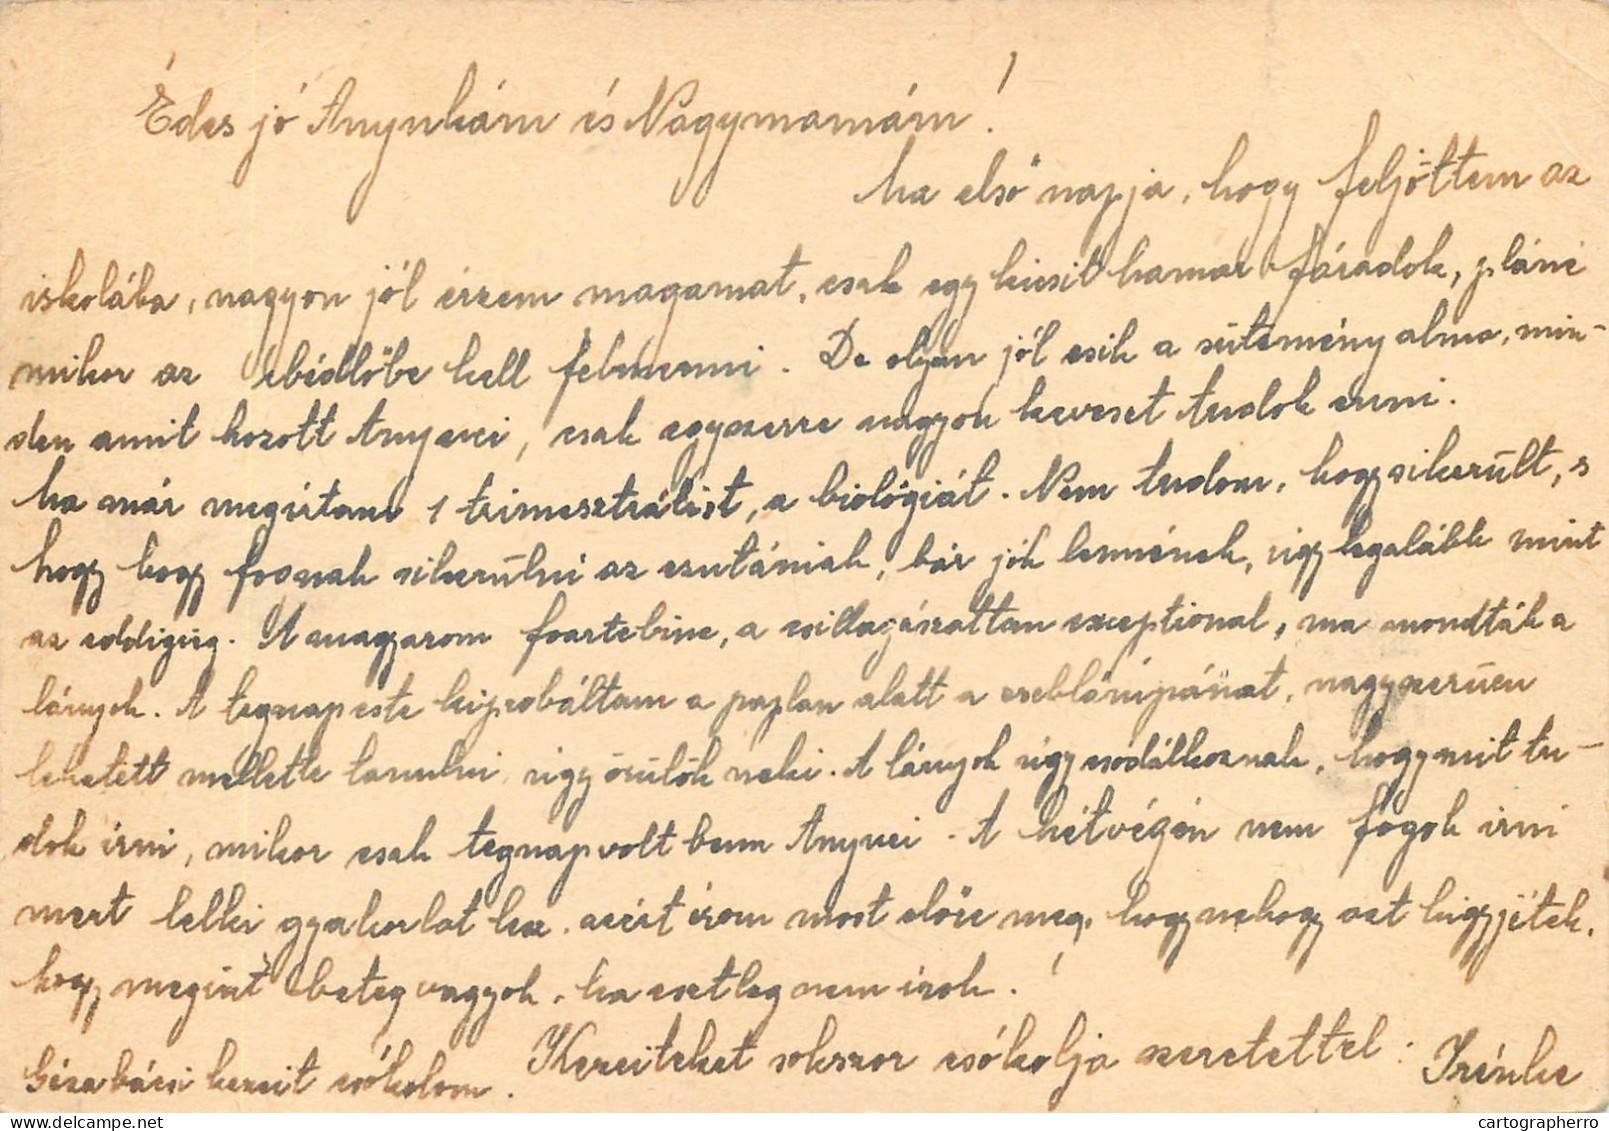 Édes jó Anyukám és Nagymamám!
Ma első napja, hogy feljöttem az
iskolába, nagyon jól érzem magamat, csak egy kicsit hamar fáradok, pláne
mikor az ebédlőbe kell felmenni. De olyan jól esik a sütemény alma, min-
den amit hozott Anyuci, csak egyszerre nagyon keveset tudok enni.
Ma már megirtam 1 trimesztrálist, a biológiát. Nem tudom, hogy sikerült, s
hogy hogy fognak sikerülni az ezutániak, bár jók lennének, úgy legalább mint
az eddigiig. A magyarom foartebine, a csillagászattan exceptional, ma mondták a
lányok. A tegnap este kipróbáltam a paplan alatt a zseblámpámat, nagyszerűen
lehetett mellette tanulni, úgy örülök neki. A lányok úgy csodálkoznak, hogy mit tu-
dok irni, mikor csak tegnap volt benn Anyuci. A hétvégén nem fogok irni
mert lelki gyakorlat lesz. azért irom most előre meg, hogy nehogy azt higyjétek,
hogy megint beteg vagyok, ha esetleg nem irok!
Kezeiteket sokszor csókolja szeretettel: Irénke
Géza bácsi kezeit csókolom.
cartographerro